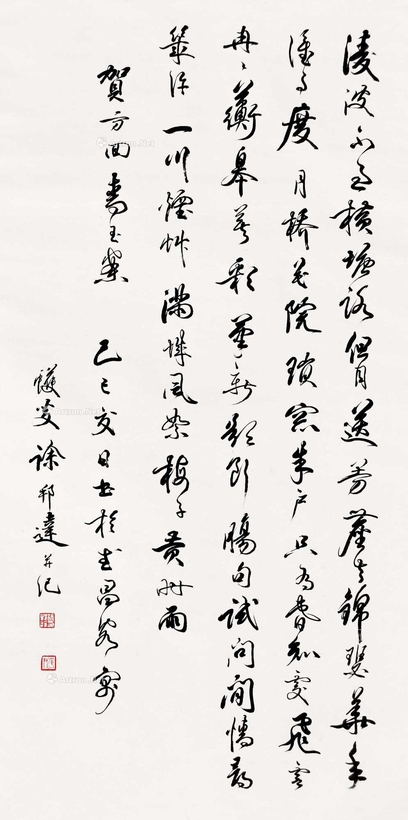 凌波不過橫塘路但目送芳塵去錦瑟華年
誰與度月橋花院瑣窗朱戶只有春知處飛雲
冉〻蘅皋暮彩筆新題斷腸句試問閒情都
幾許一川煙艸滿城風絮梅子黃時雨
賀方回青玉案 己巳夏日書於武昌客寓
蠖叟徐邦達并記